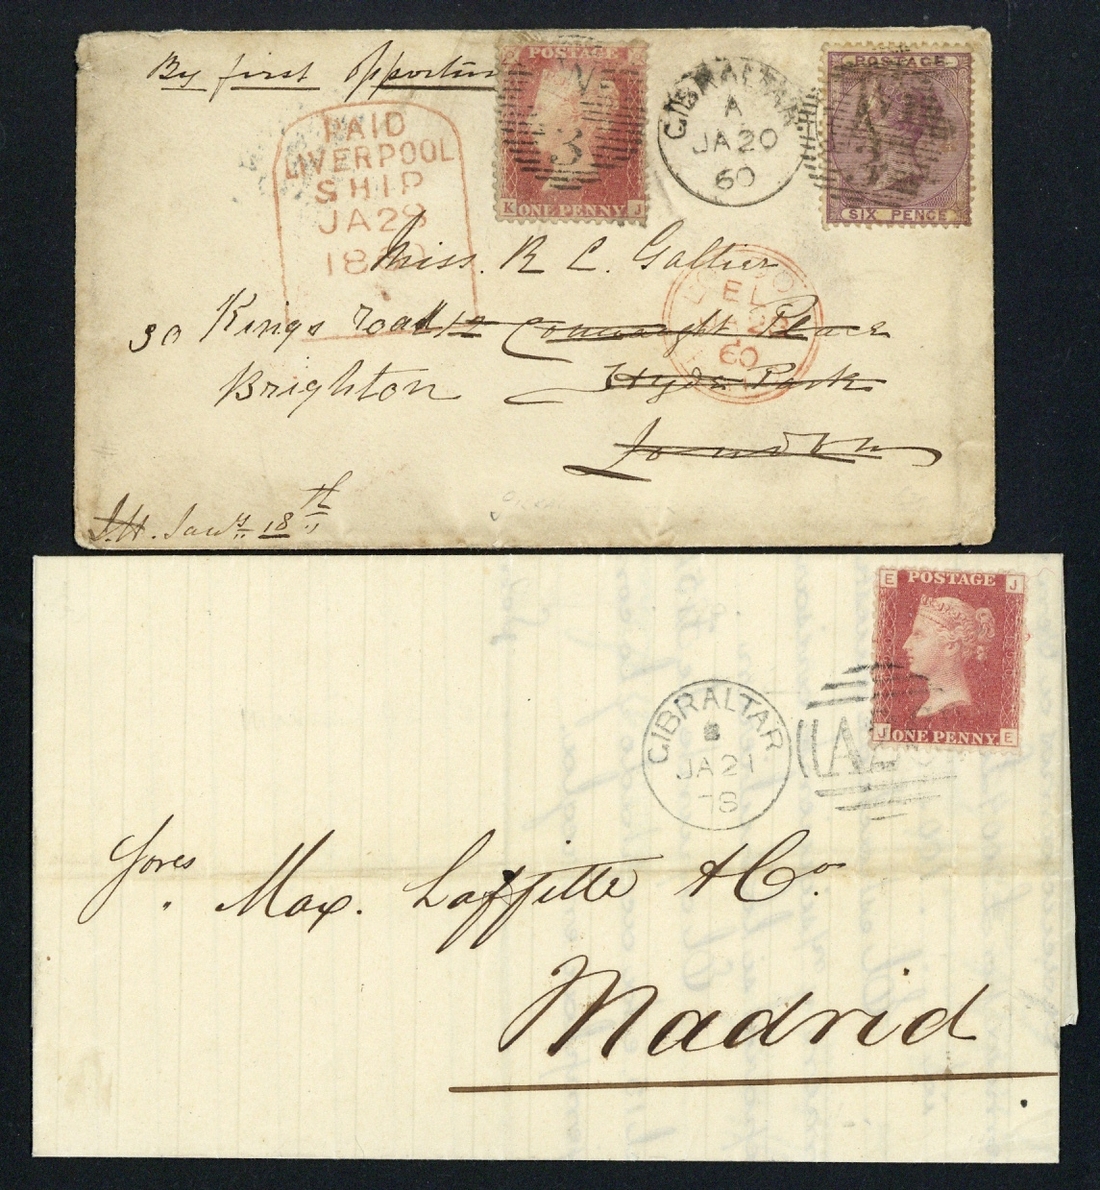 By first
POSTAGE
3
K ONE PENNY J
GIBRALTAR
A
JA 20
60
POSTAGE
SIX PENCE
PAID
LIVERPOOL
SHIP
JA 28
18
Miss. R C. Galtier
EL
60
30 Kings road 12 Connaught Place
Brighton Hyde Park
London
18th
E POSTAGE J
J ONE PENNY E
GIBRALTAR
B
JA 21
78
A
Sores
Max. Laffitte & Co.
Madrid